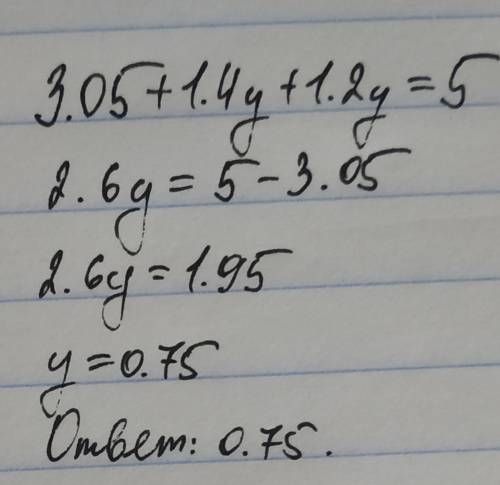 3.05+1.4y+1.2y=5
2.6y=5-3.05
2.6y=1.95
y=0.75
Ответ: 0.75.